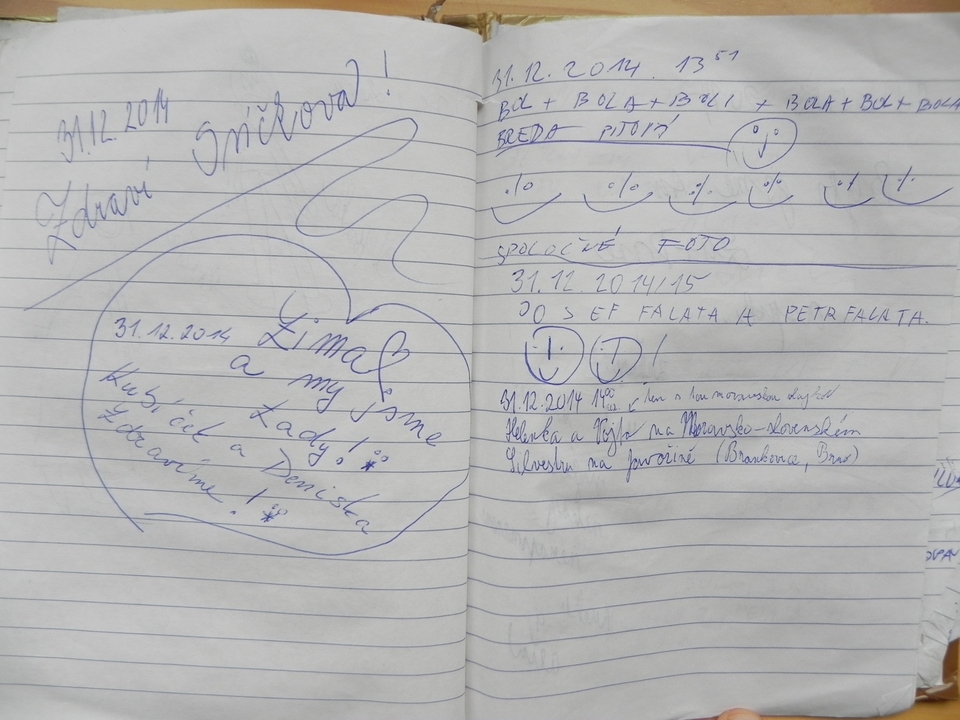 31.12.2014
Zdraví Sníčkova!
31.12.2014 Zima
a my jsme
tady!
Kubíčit a Deniska
Zdravíme!
31.12.2014. 13 51
BOL + BOLA + BOLI + BOLA + BOL + BOLA
BREDA
SPOLOČNÉ FOTO
31.12.2014/15
JOSEF FALATA A PETR FALATA.
!
31.12.2014 14 00
Helenka a Vojta na Moravsko-slovenském
Silvestru na Javořině (Brankovice, Brno)